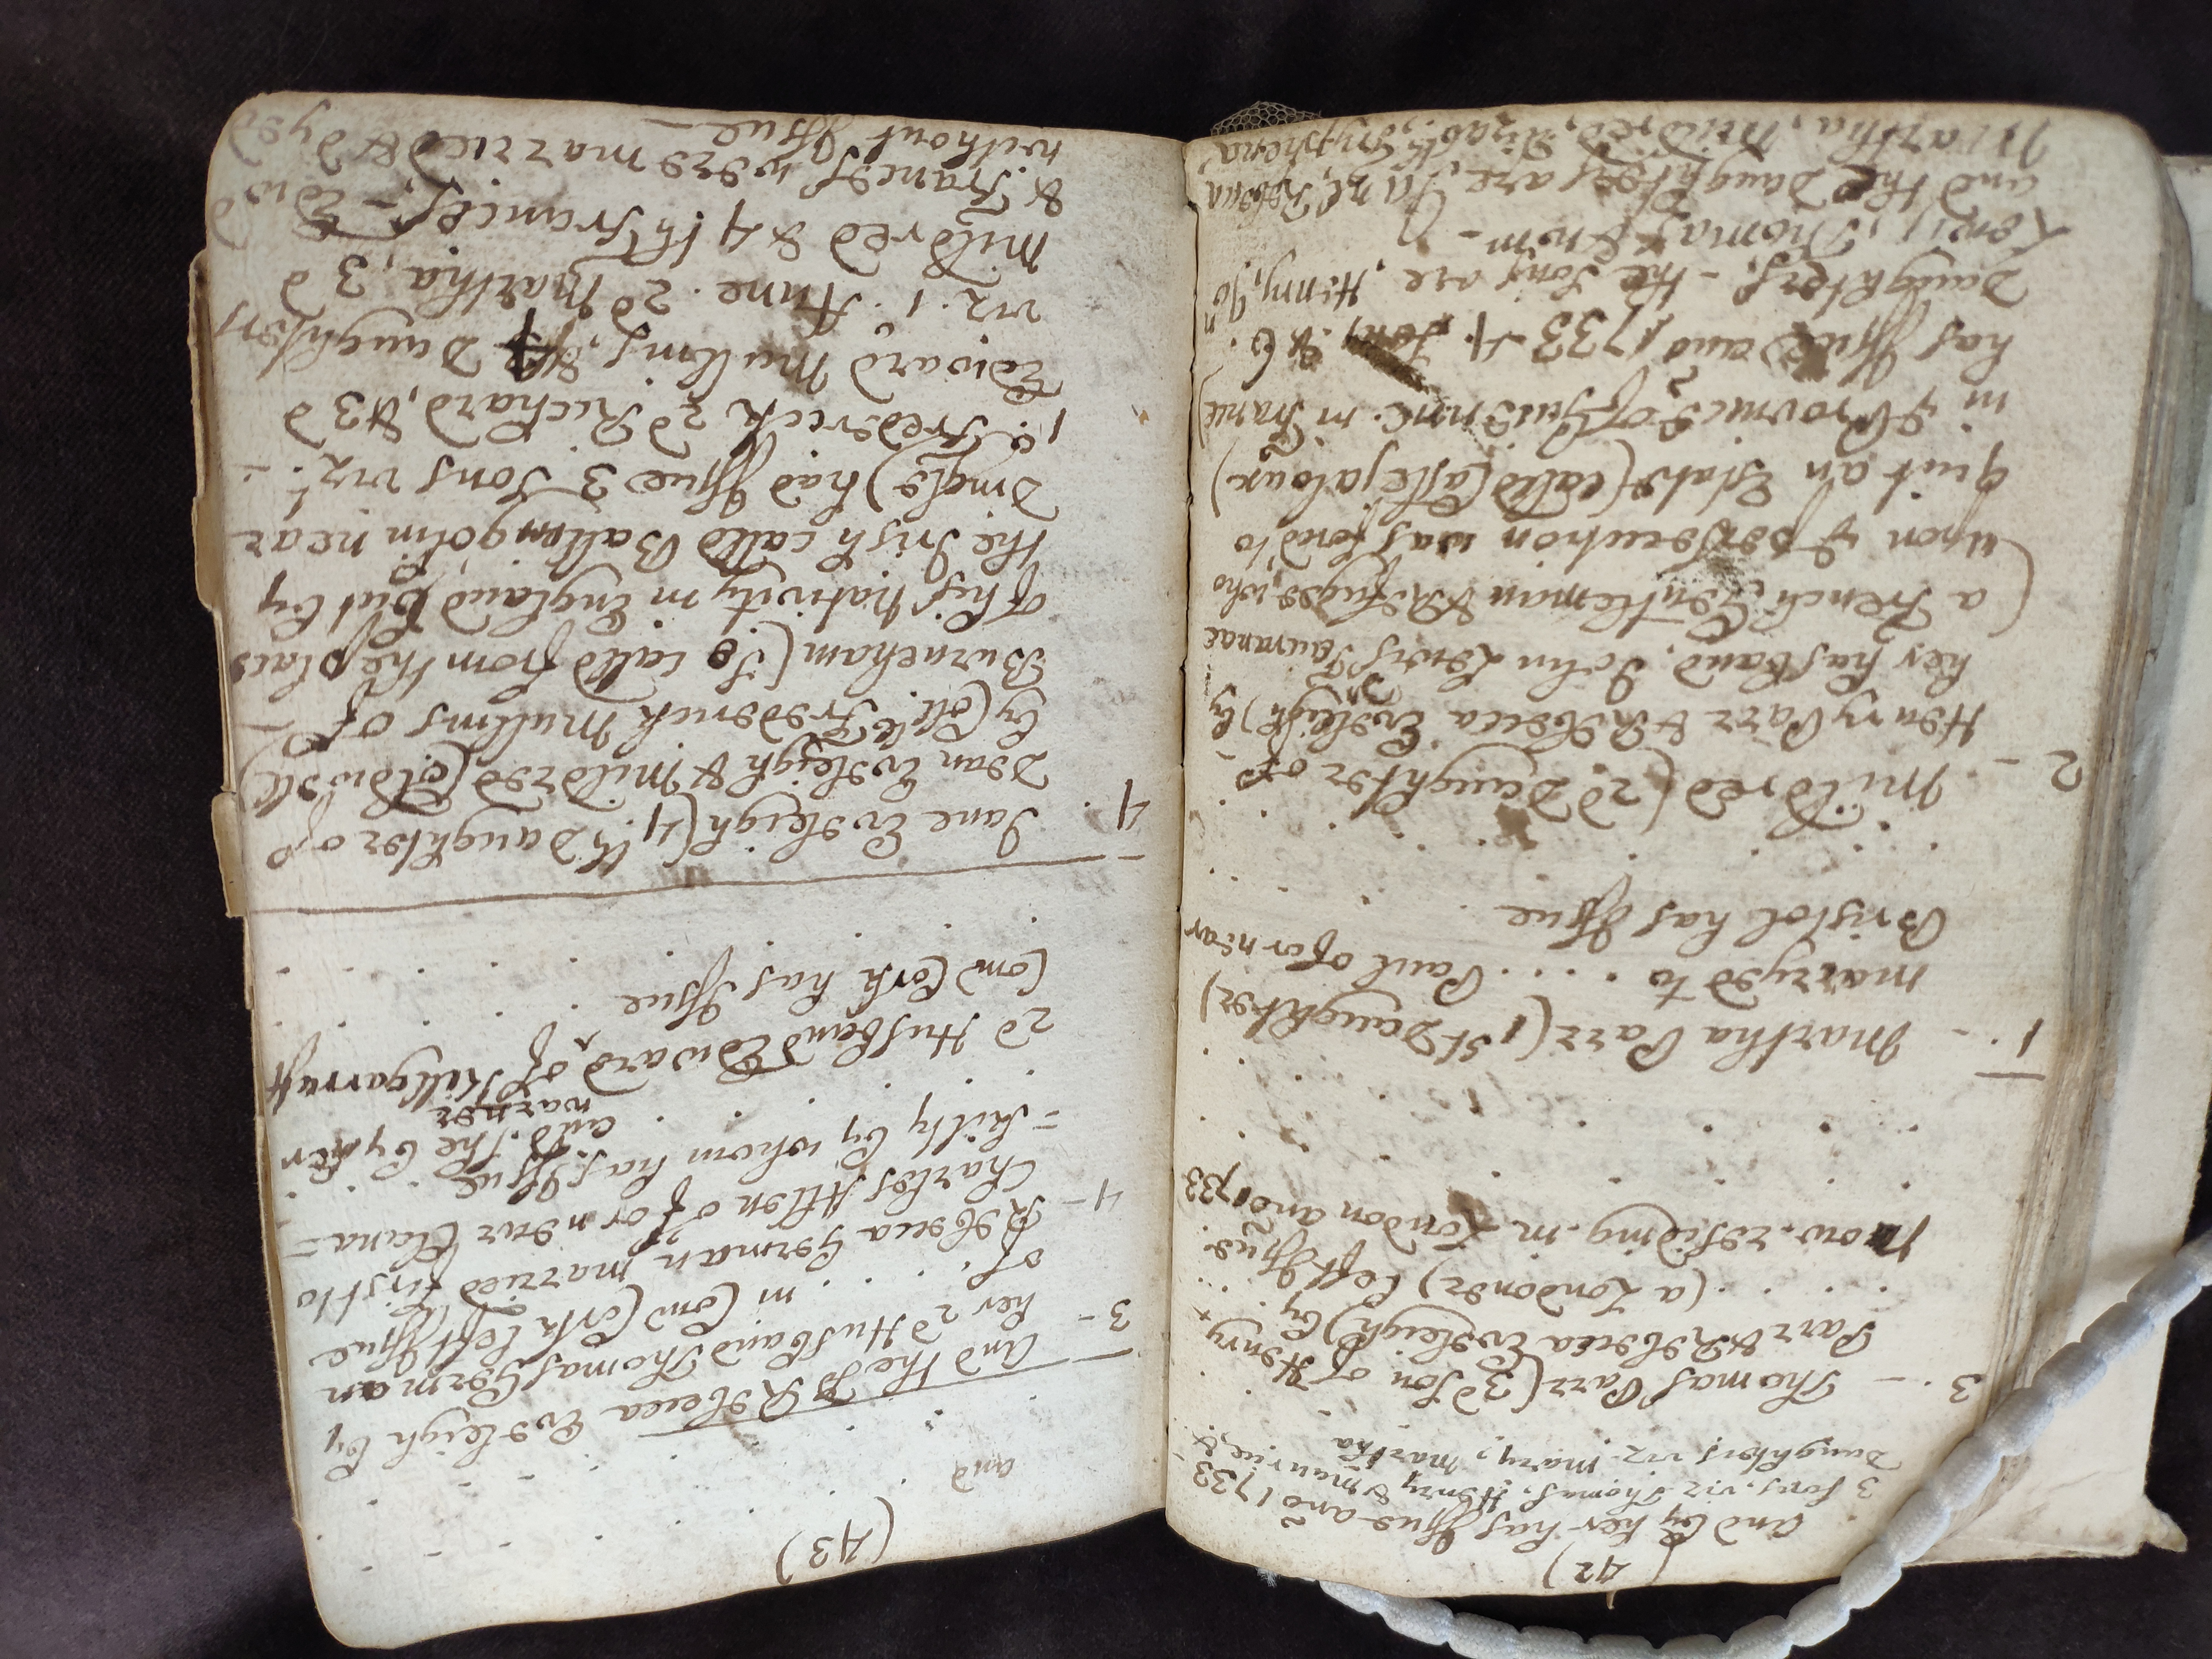 (42)
and by her has Issue and 1733
3 sons. viz Thomas, Henry & maurice, &
Daughters viz. mary, martha
3. - Thomas Parr (3d Son of Henry
Parr & Rebecca Evsleigh) by
(a Londoner) left Issue
now residing in London and 1733
1 - Martha Parr (1st Daughter)
marryed to . . . . Paul of or near
Bristol has Issue
2 - Mildred (2d Daughter of
Henry Parr & Rebecca Evsleigh) by
her husband, John Lewis Jauranac
(a French Gentleman & Refugee, who
upon ye persecution was forced to
quit an Estate (calld Castlejaloux)
in ye Province of Guienne in France)
has Issue and 1733 4 Sons & 6
Daughters. - the Sons are, Henry, Jon
Lewis, Thomas & Wm -
and the Daughters are, Jane, Rebecca
Martha, Mildred, Elizabth Tryphena
(43)
and
And the sd Rebecca Evsleigh by
3 - her 2d Husband Thomas German
of . . . . in Com Cork left Issue
4 - Rebecca German married first to
Charles Allen of or near Clana=
=kilty by whom has Issue
and She by her
2d Husband Edward warner of Killgarruff
Com Cork has Issue
4. Jane Evsleigh (4th Daughter of
Dean Evsleigh & Mildred Coldwell)
by Coll: Frederick Mullins of
Burneham (So calld from the place
of his nativity in England but by
the Irish calld Ballingolin near
Dingle) had Issue 3 Sons viz: -
1. Frederick 2d Richard, & 3d
Edward Mullins, & 4 Daughters
viz. 1. Anne. 2d Martha, 3d
Mildred & 4th Frances, - Edwd
& Frances were married & dyed
without Issue -